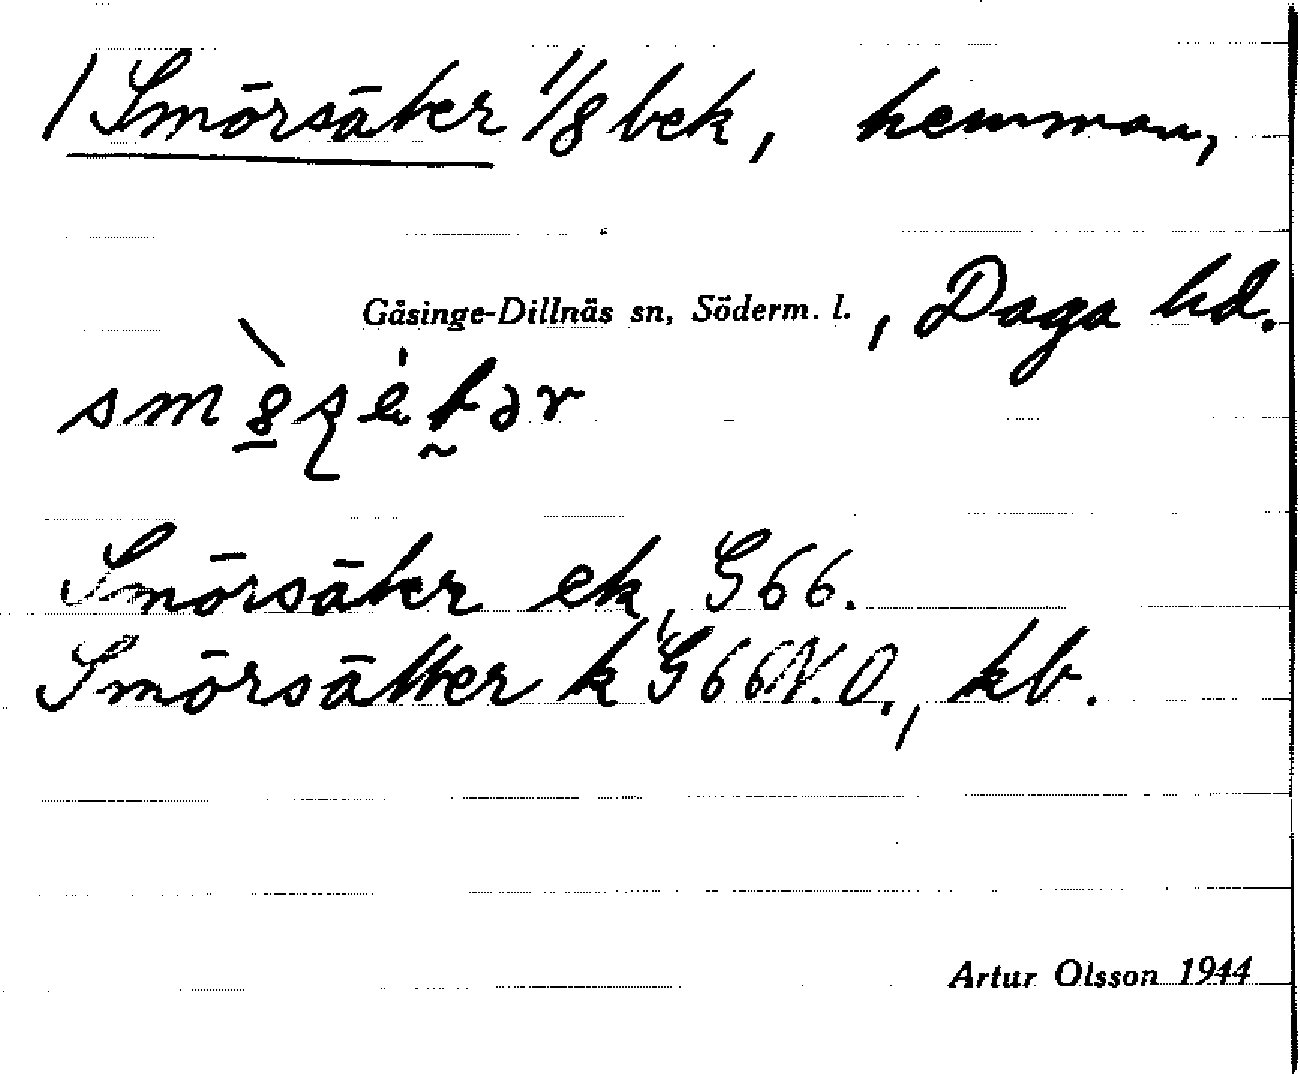 / Smörsäter 1/8 bek, hemman,
Gåsinge-Dillnäs sn, Söderm. l., Daga hd.
Smörsäter ek, G66.
Smörsätter k G66N.O., kb.
Artur Olsson 1944